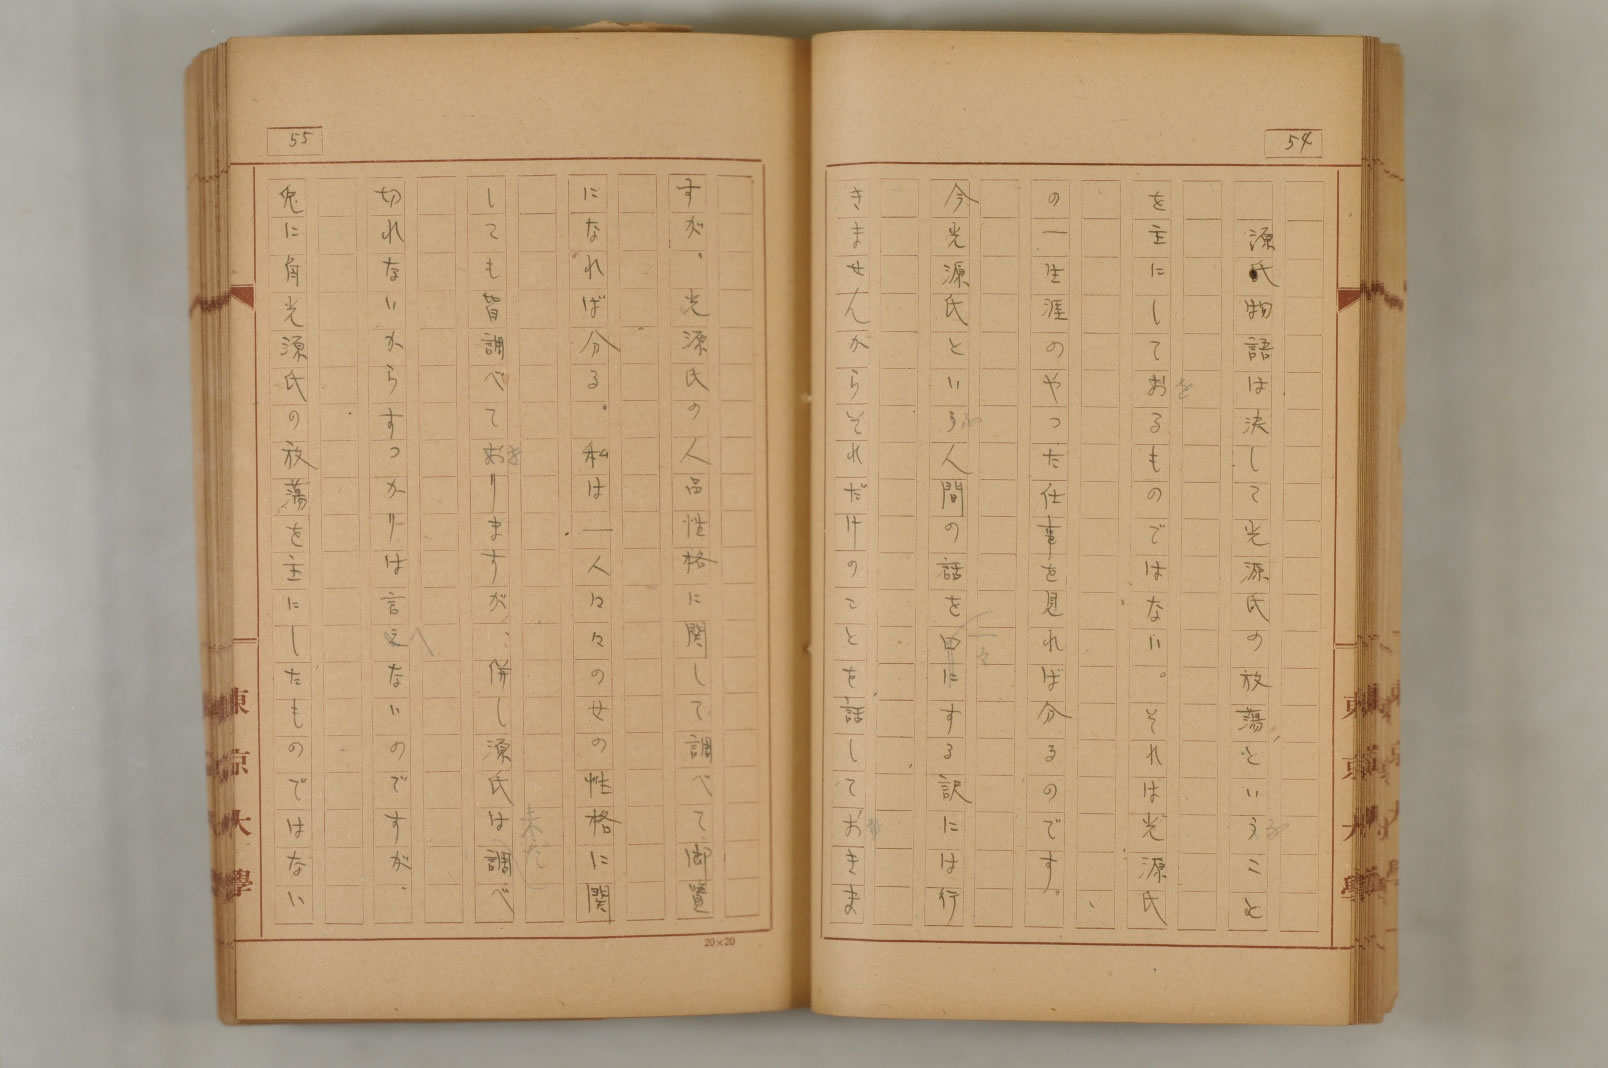 54
源氏物語は決して光源氏の放蕩ということ
ふ
を主にしておるものではない。それは光源氏
を
の一生涯のやつた仕事を見れば分るのです。
今光源氏という人間の話を口にする訳には行
ふ
一々
きませんからそれだけのことを話しておきま
東京大學
55
すが、光源氏の人品性格に関して調べて御覧
になれば分る。私は一人々々の女の性格に関
しても皆調べておりますが、併し源氏は調べ
を
未だ
切れないからすつかりは言えないのですが、
へ
兎に角光源氏の放蕩を主にしたものではない
東京大學
20×20